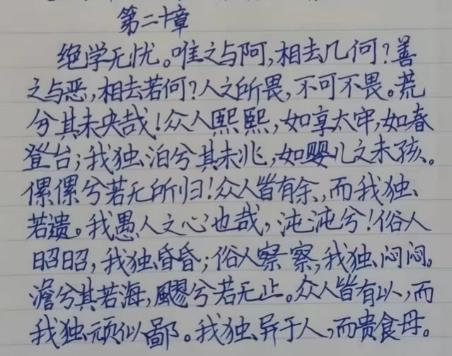 第二十章
绝学无忧。唯之与阿,相去几何?善
之与恶,相去若何?人之所畏,不可不畏。荒
兮其未央哉!众人熙熙,如享太牢,如春
登台;我独泊兮其未兆,如婴儿之未孩。
傫傫兮若无所归!众人皆有余,而我独
若遗。我愚人之心也哉,沌沌兮!俗人
昭昭,我独昏昏;俗人察察,我独闷闷。
澹兮其若海,飂兮若无止。众人皆有以,而
我独顽似鄙。我独异于人,而贵食母。